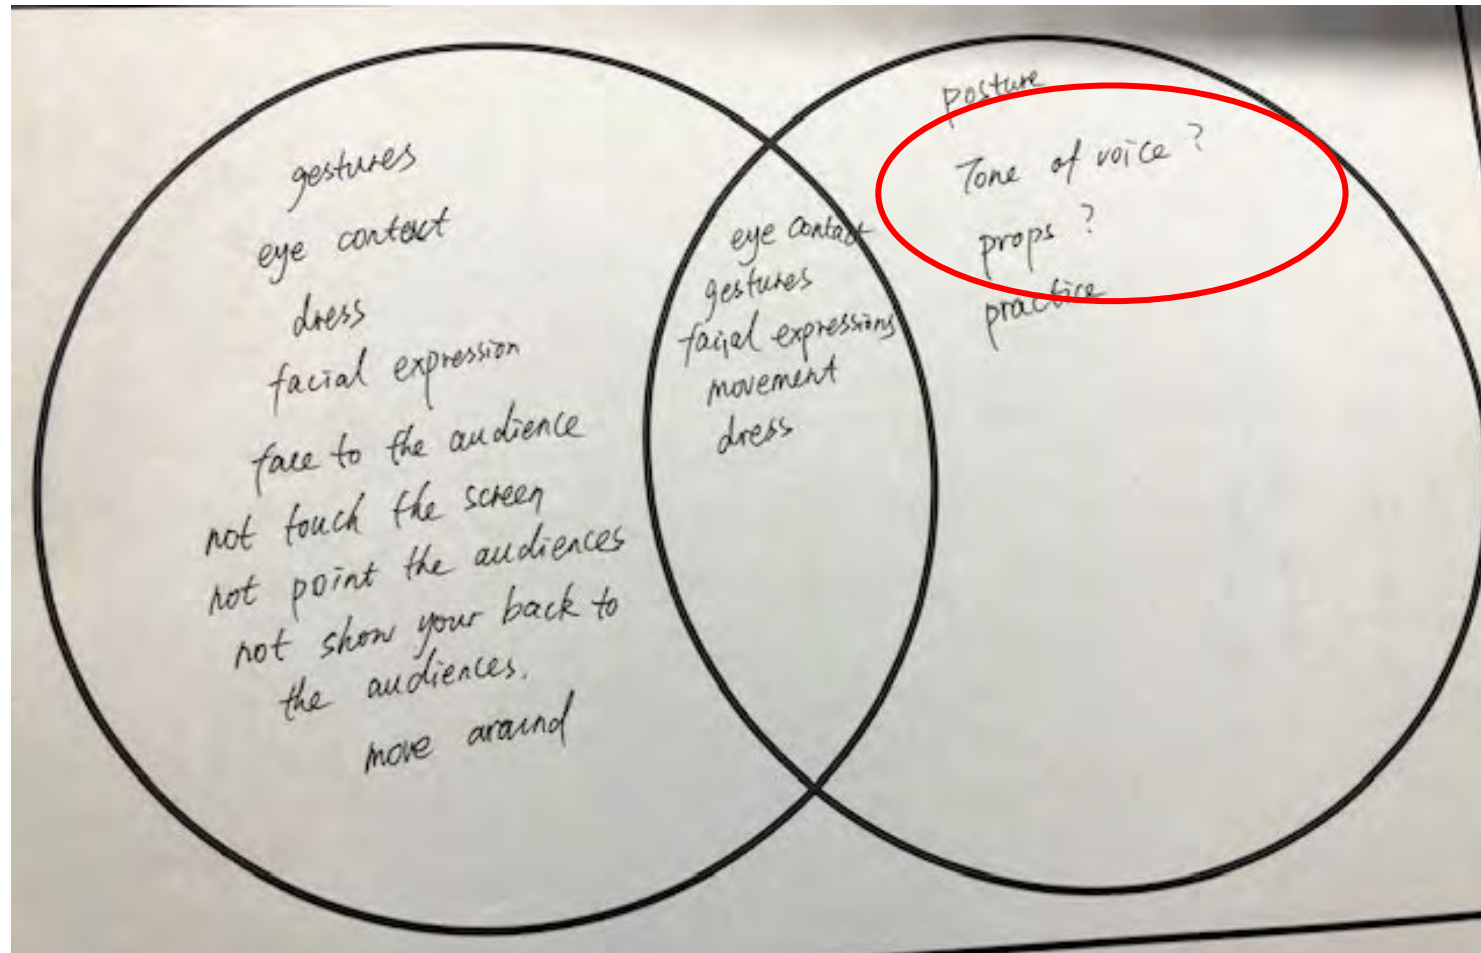 gestures
eye contact
dress
facial expression
face to the audience
not touch the screen
not point the audiences
not show your back to
the audiences.
move around
eye contact
gestures
facial expressions
movement
dress
posture
Tone of voice ?
props ?
practice